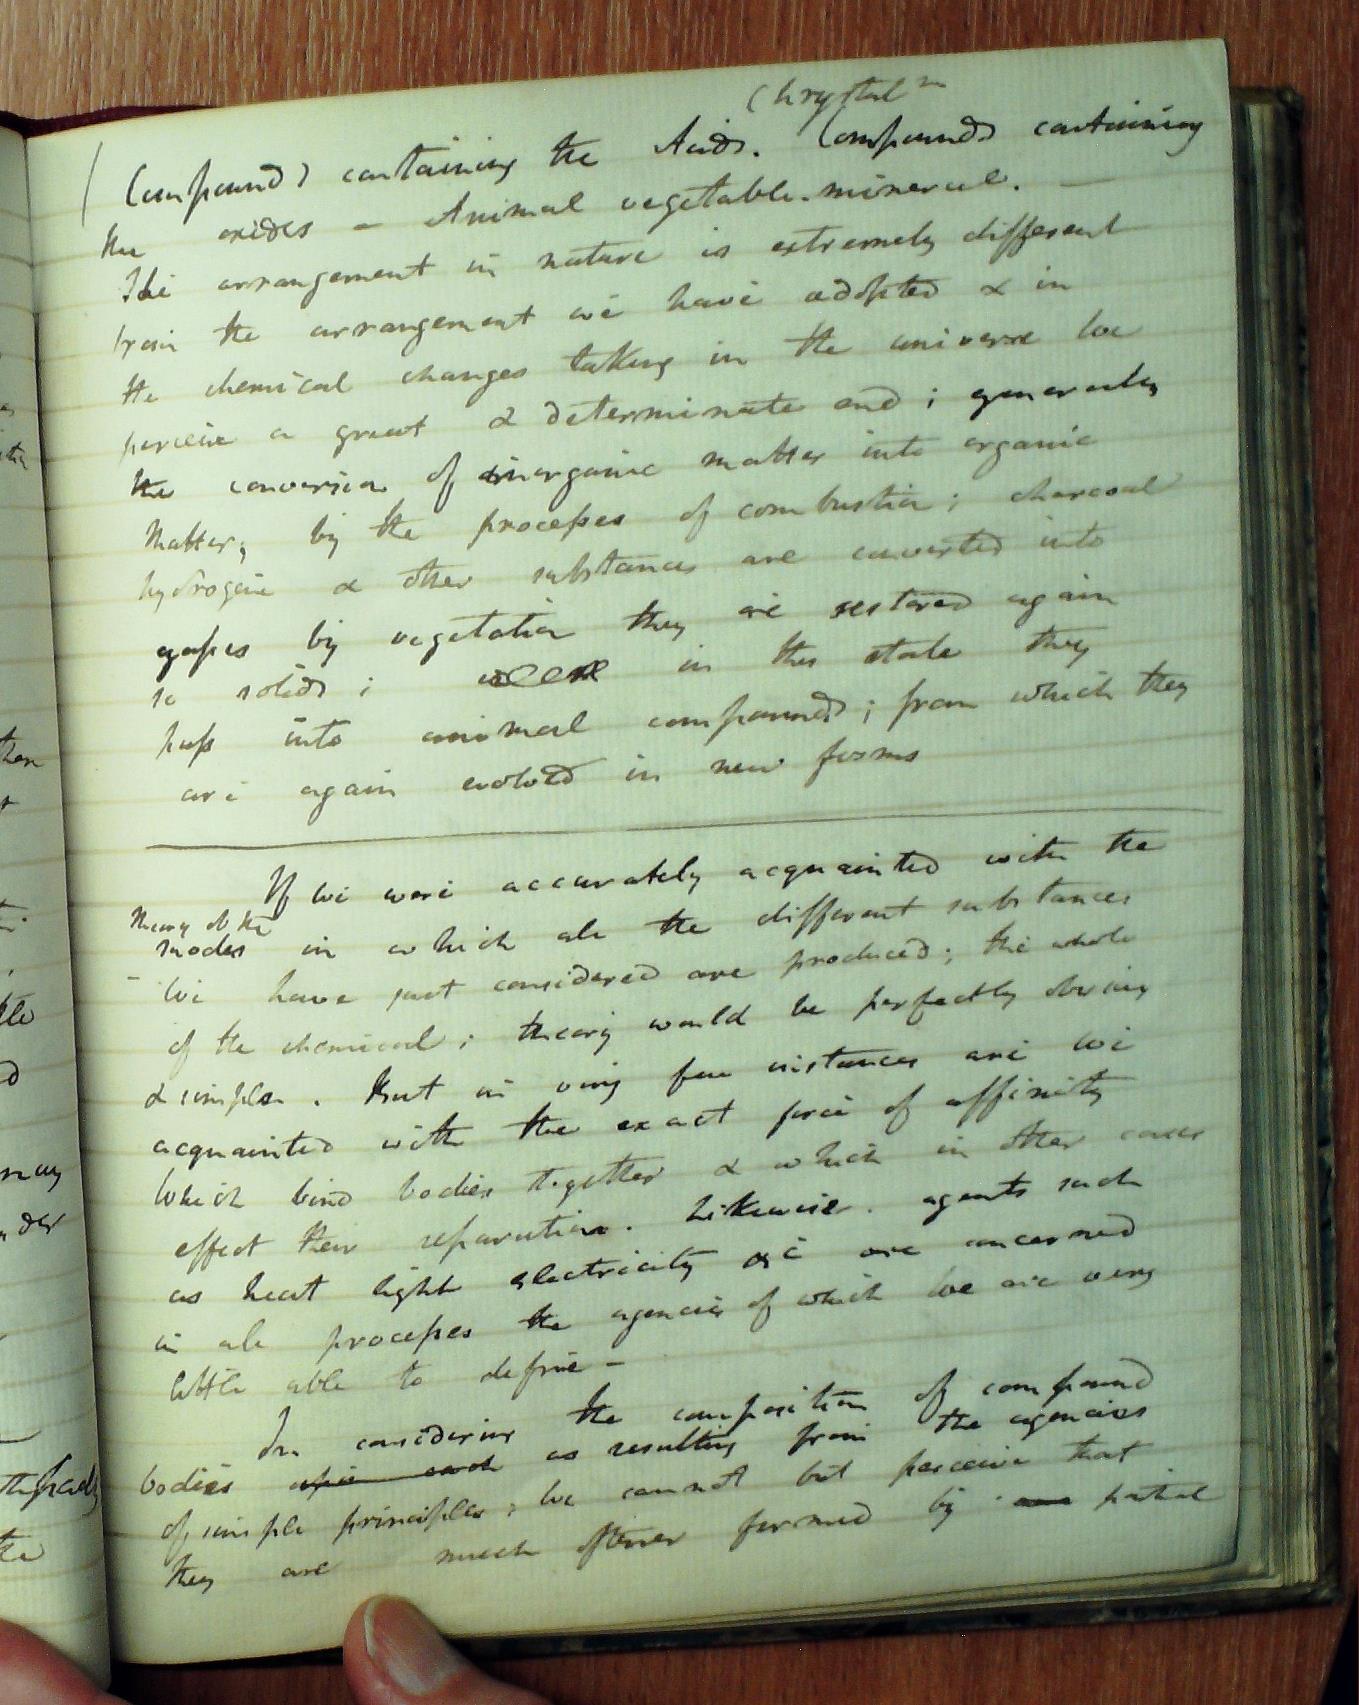 Chrystaln
Compounds containing the Acids. Compounds containing
the oxides – Animal vegetable. mineral. —
The arrangement in nature is extremely different
from the arrangement we have adopted & in
the chemical changes taking in the universe we
perceive a great & determinate end; generally
the conversion of inorganic matter into organic
matter; by the processes of combustion; charcoal
hydrogene & other substances are converted into
gasses by vegetation they are restored again
to solids; in this state they
pass into animal compounds; from which they
are again evolved in new forms
If we were accurately acquainted with the
theory of the
modes in which all the different substances
– we have just considered are produced; the whole
of the chemical; theory would be perfectly obvious
& simple. But in very few instances are we
acquainted with the exact force of affinity
which bind bodies together & which in other cases
effect their separation. Likewise. agents such
as heat light electricity &c are concerned
in all processes the agencies of which we are very
little able to define –
In considering the composition of compound
bodies upon each as resulting from the agencies
of simple principles; we cannot but perceive that
they are much oftener formed by partial
then
ple
may
the